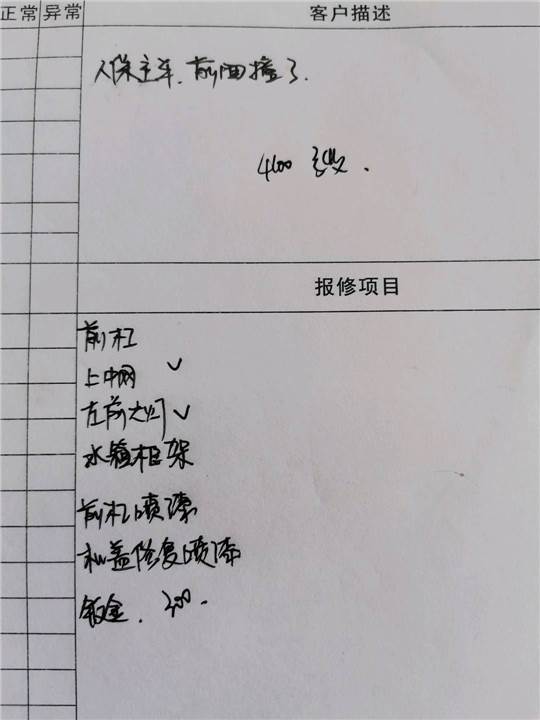 正常 异常 客户描述
人保主车.前面撞了.
4600
报修项目
前杠
上中网 ✓
左前大灯 ✓
水箱框架
前杠喷漆
机盖修复喷漆
钣金.200.